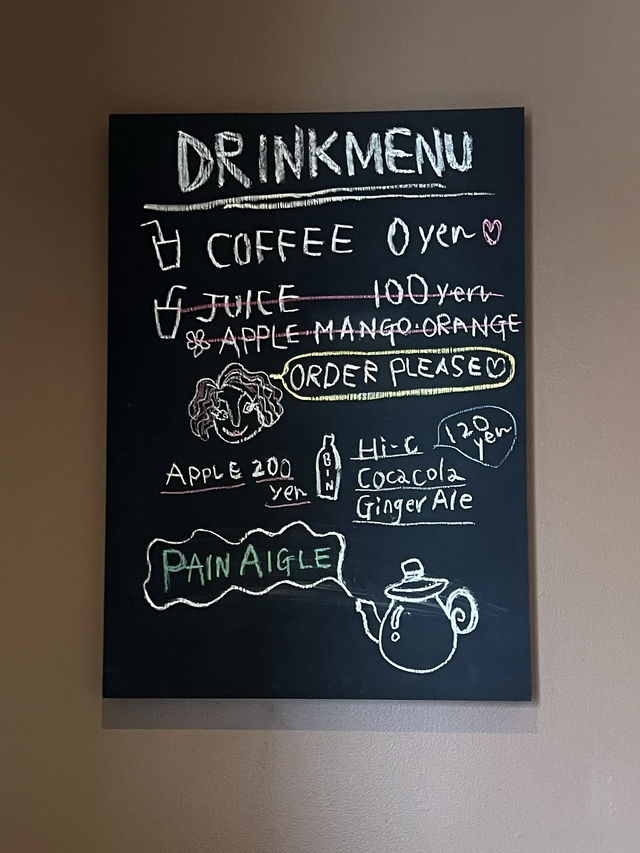 DRINKMENU
COFFEE 0yen♡
JUICE 100yen
APPLE MANGO·ORANGE
ORDER PLEASE♡
Hi-C 120 yen
APPLE 200 yen
BIN
Cocacola
Ginger Ale
PAIN AIGLE